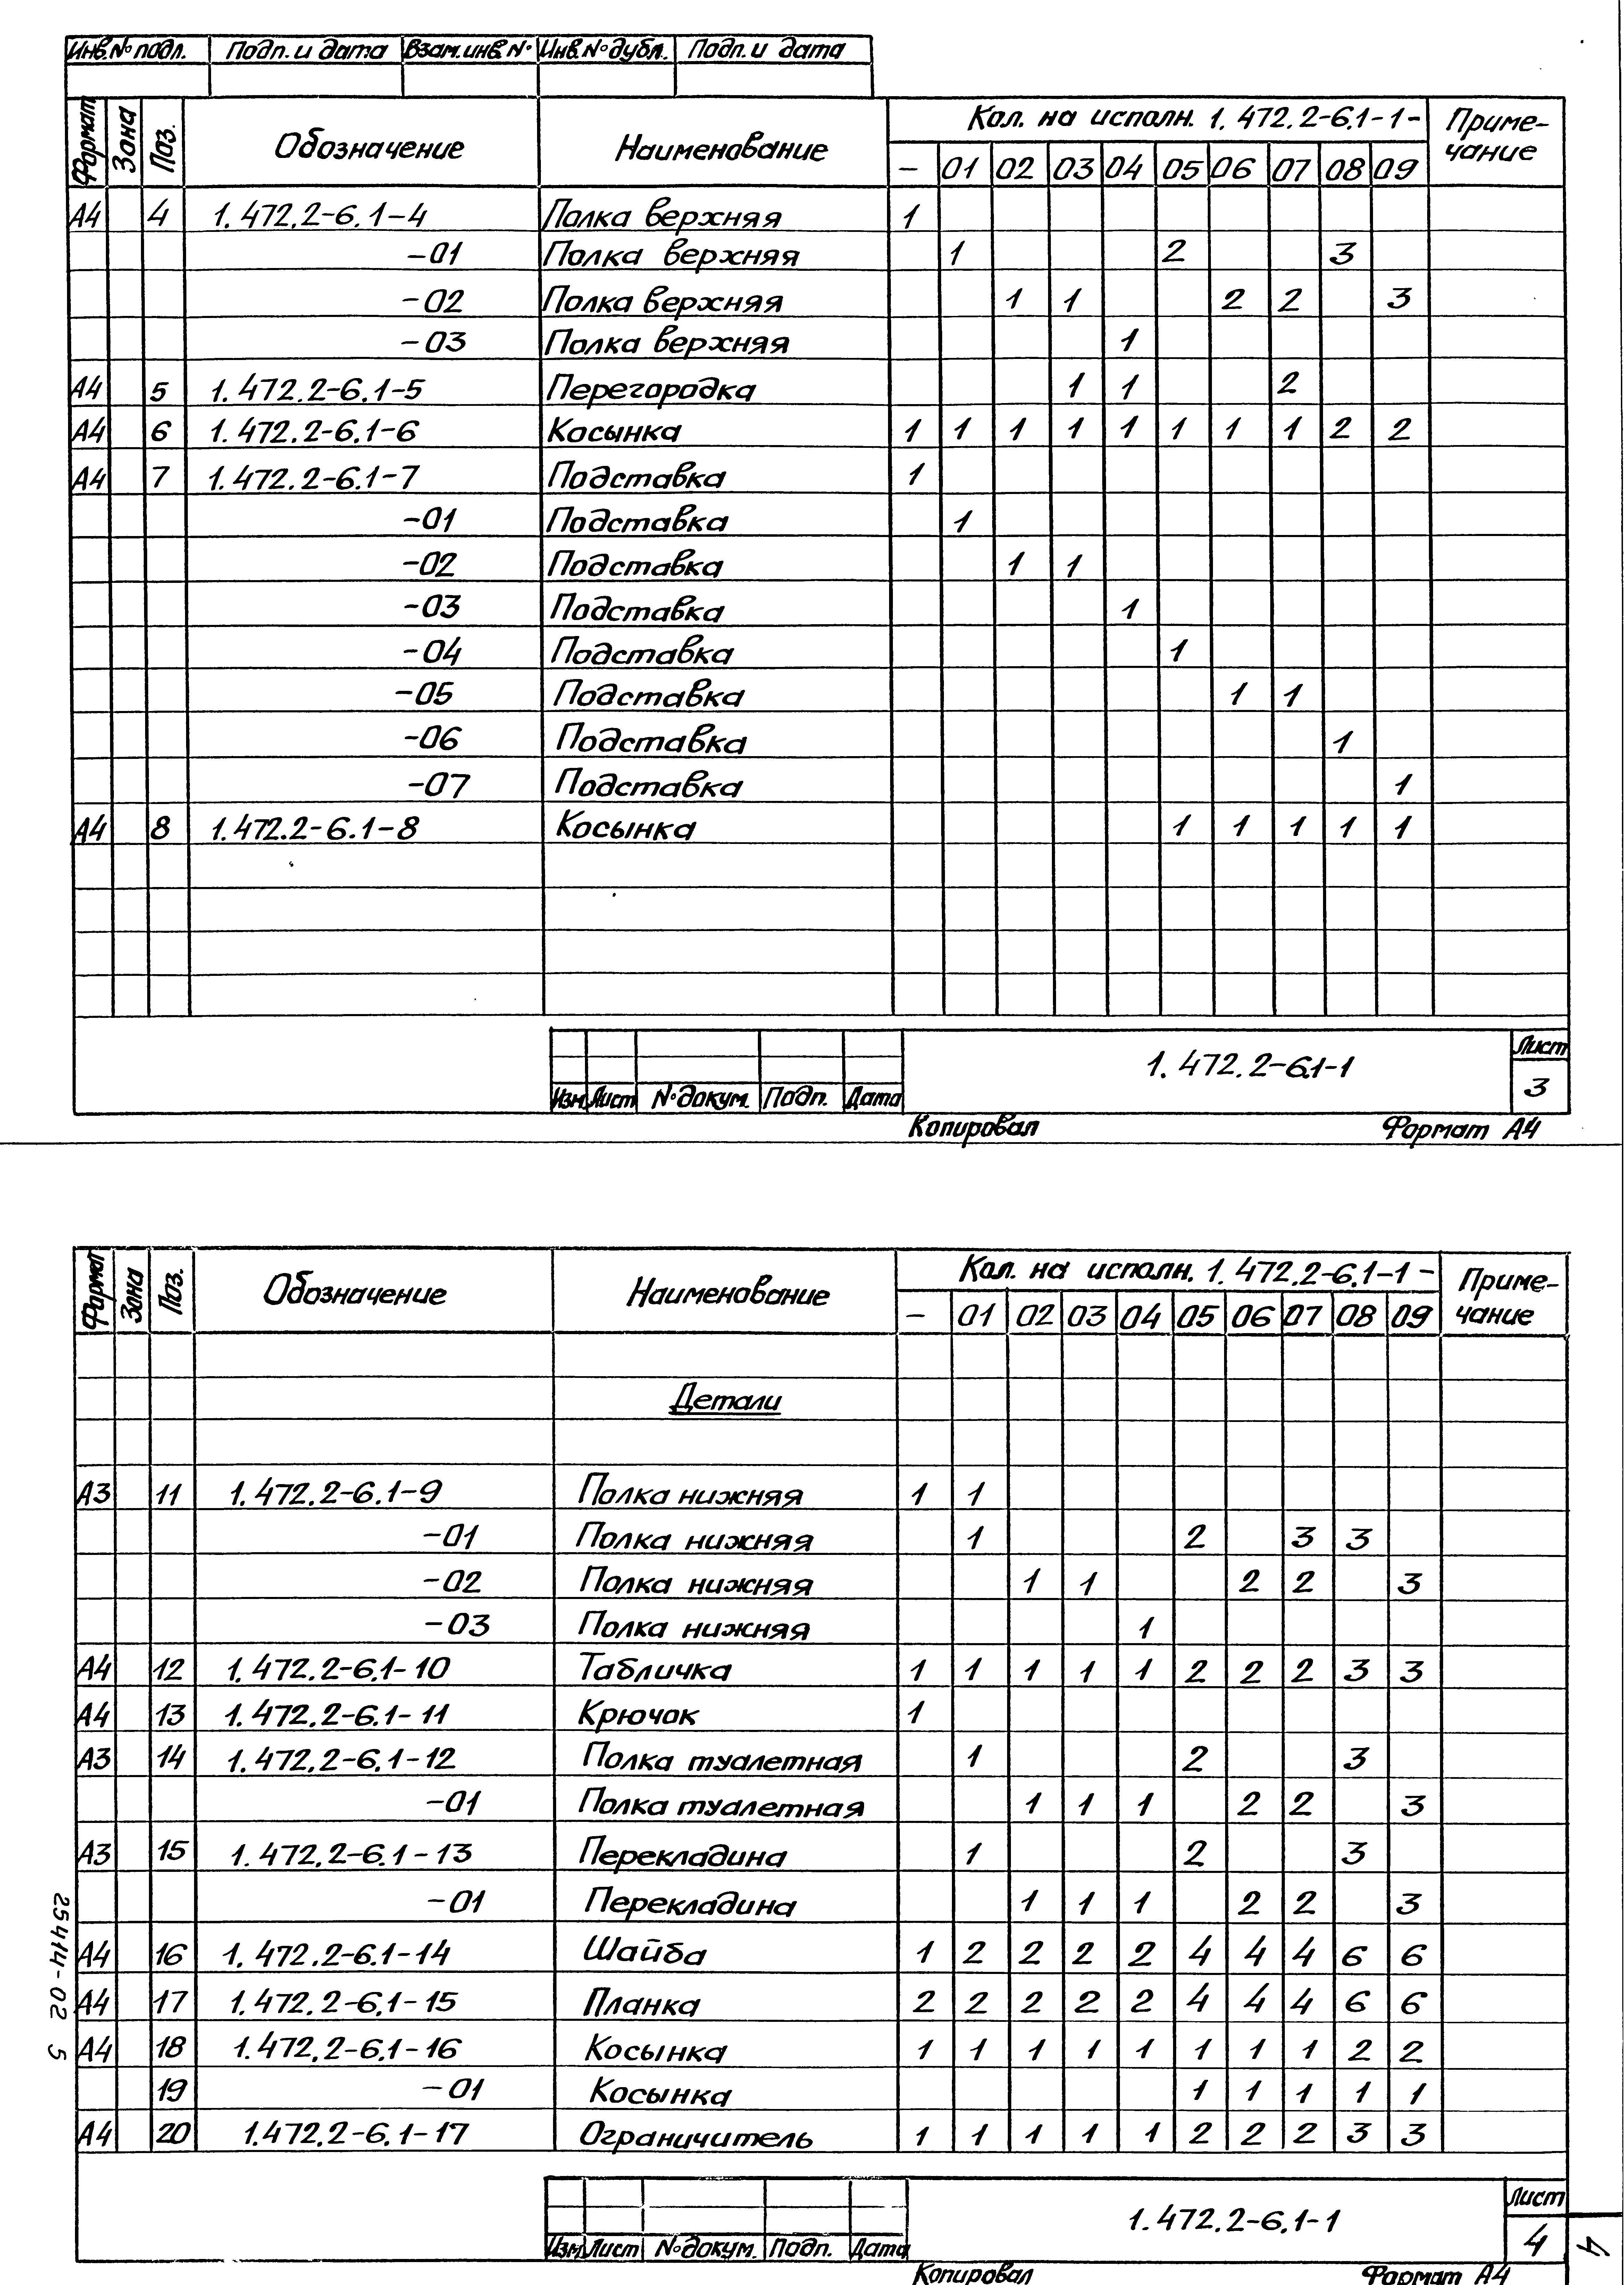 Инв.№ подл. Подп. и дата Взам.инв.№ Инв.№ дубл. Подп. и дата
Формат Зона Поз. Обозначение Наименование Кол. на исполн. 1.472.2-6.1-1- Приме-
чание
– 01 02 03 04 05 06 07 08 09
А4 4 1.472.2-6.1-4 Полка верхняя 1
-01 Полка верхняя 1 2 3
-02 Полка верхняя 1 1 2 2 3
-03 Полка верхняя 1
А4 5 1.472.2-6.1-5 Перегородка 1 1 2
А4 6 1.472.2-6.1-6 Косынка 1 1 1 1 1 1 1 1 2 2
А4 7 1.472.2-6.1-7 Подставка 1
-01 Подставка 1
-02 Подставка 1 1
-03 Подставка 1
-04 Подставка 1
-05 Подставка 1 1
-06 Подставка 1
-07 Подставка 1
А4 8 1.472.2-6.1-8 Косынка 1 1 1 1 1
1.472.2-6.1-1 Лист
3
Изм Лист № докум. Подп. Дата
Копировал Формат А4
Формат Зона Поз. Обозначение Наименование Кол. на исполн. 1.472.2-6.1-1- Приме-
чание
– 01 02 03 04 05 06 07 08 09
Детали
А3 11 1.472.2-6.1-9 Полка нижняя 1 1
-01 Полка нижняя 1 2 3 3
-02 Полка нижняя 1 1 2 2 3
-03 Полка нижняя 1
А4 12 1.472.2-6.1-10 Табличка 1 1 1 1 1 2 2 2 3 3
А4 13 1.472.2-6.1-11 Крючок 1
А3 14 1.472.2-6.1-12 Полка туалетная 1 2 3
-01 Полка туалетная 1 1 1 2 2 3
А3 15 1.472.2-6.1-13 Перекладина 1 2 3
-01 Перекладина 1 1 1 2 2 3
А4 16 1.472.2-6.1-14 Шайба 1 2 2 2 2 4 4 4 6 6
А4 17 1.472.2-6.1-15 Планка 2 2 2 2 2 4 4 4 6 6
А4 18 1.472.2-6.1-16 Косынка 1 1 1 1 1 1 1 1 2 2
19 -01 Косынка 1 1 1 1 1
А4 20 1.472.2-6.1-17 Ограничитель 1 1 1 1 1 2 2 2 3 3
25414-02 5
1.472.2-6.1-1 Лист
4
Изм Лист № докум. Подп. Дата
Копировал Формат А4
4